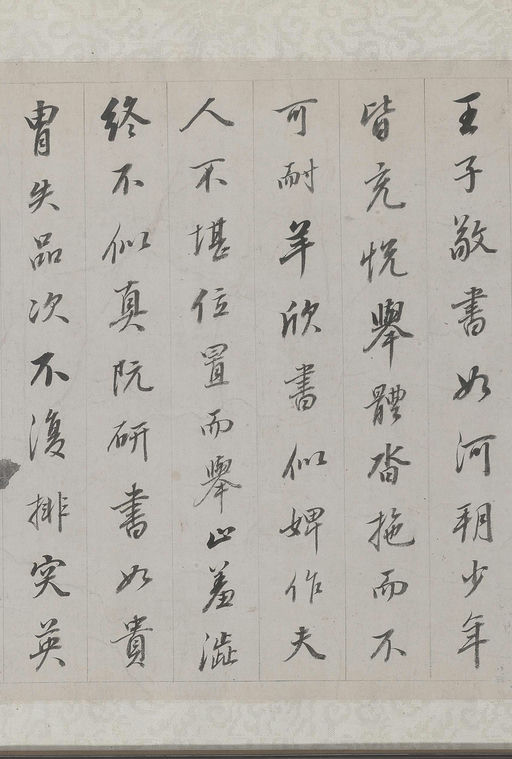 王子敬書如河朔少年
皆充悦舉體沓拖而不
可耐羊欣書似婢作夫
人不堪位置而舉止羞澁
終不似真阮研書如貴
胄失品次不復排突英